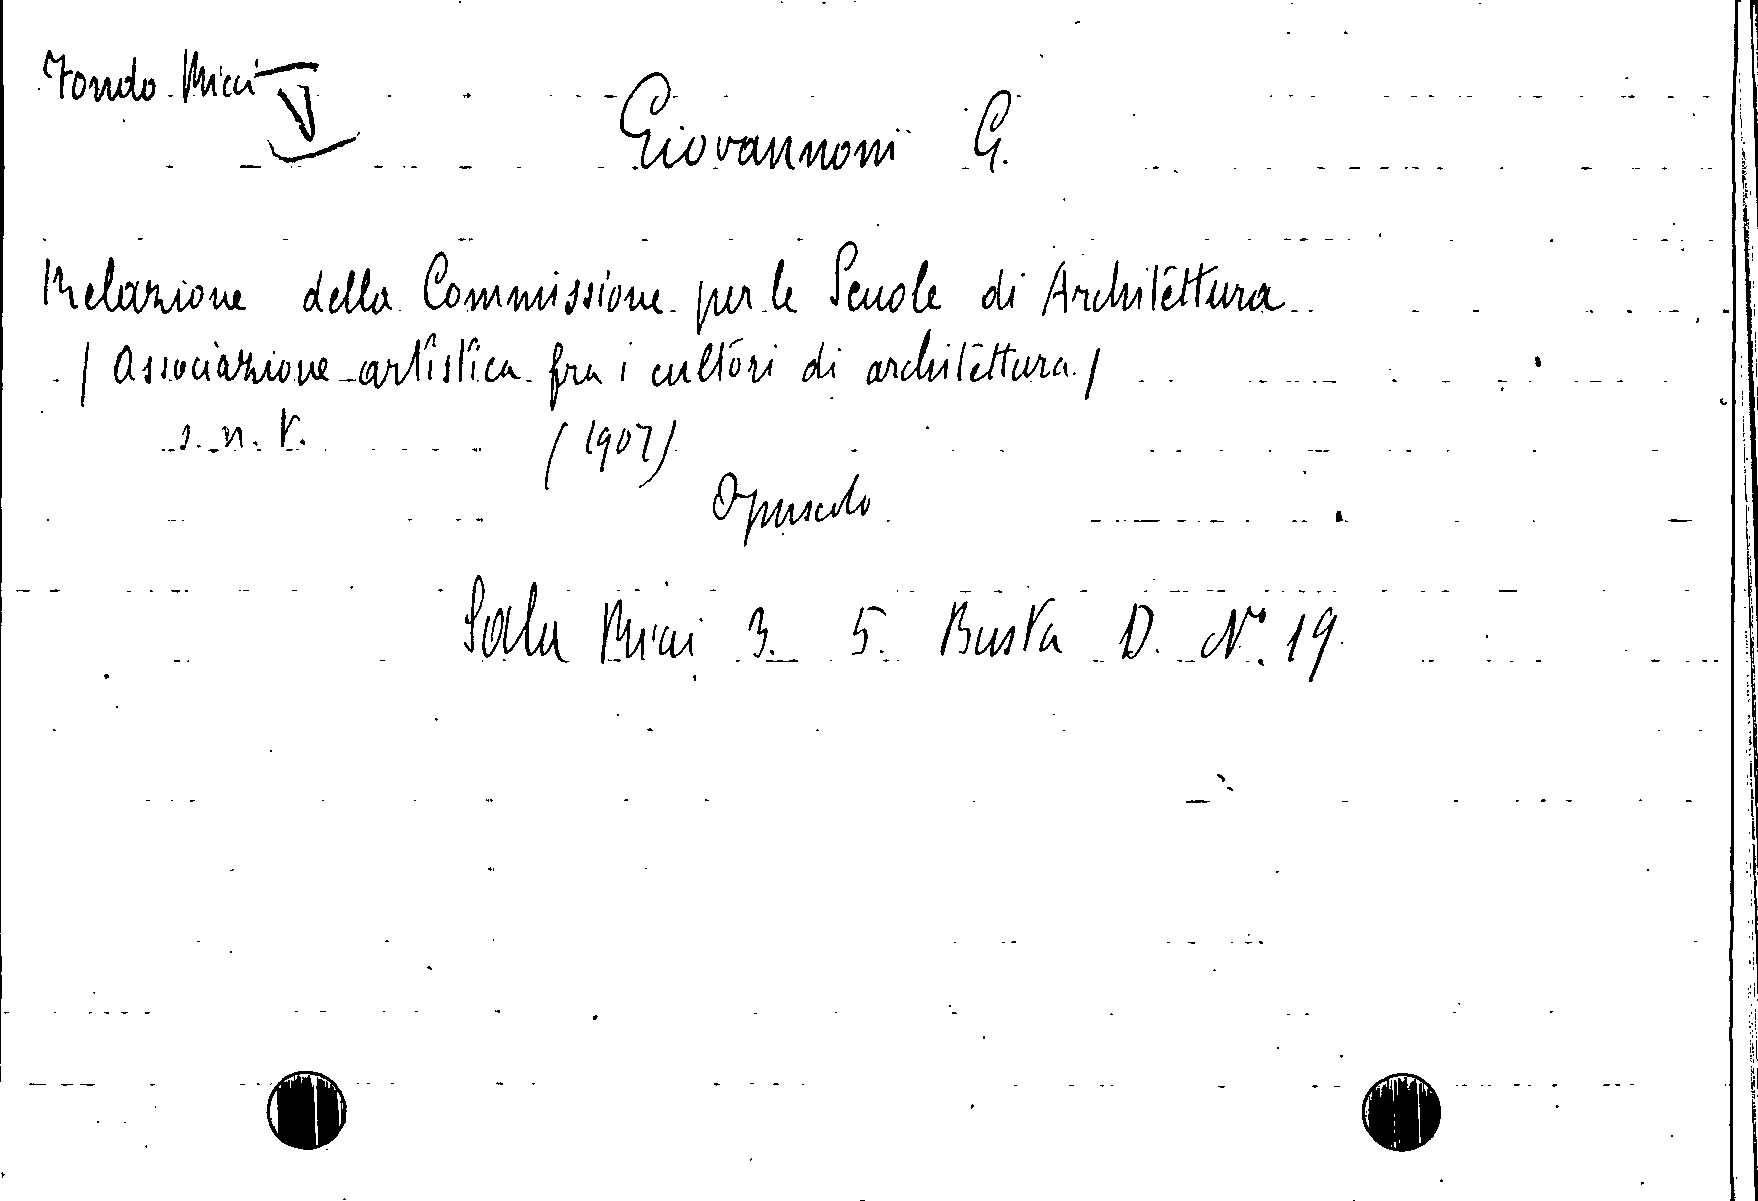 Fondo Ricci
Giovannoni G.
Relazione della Commissione per le Scuole di Architettura
/ Associazione artistica fra i cultori di architettura /
s. n. t. (1907)
Opuscolo
Sala Ricci 3. 5. Busta D. N° 19